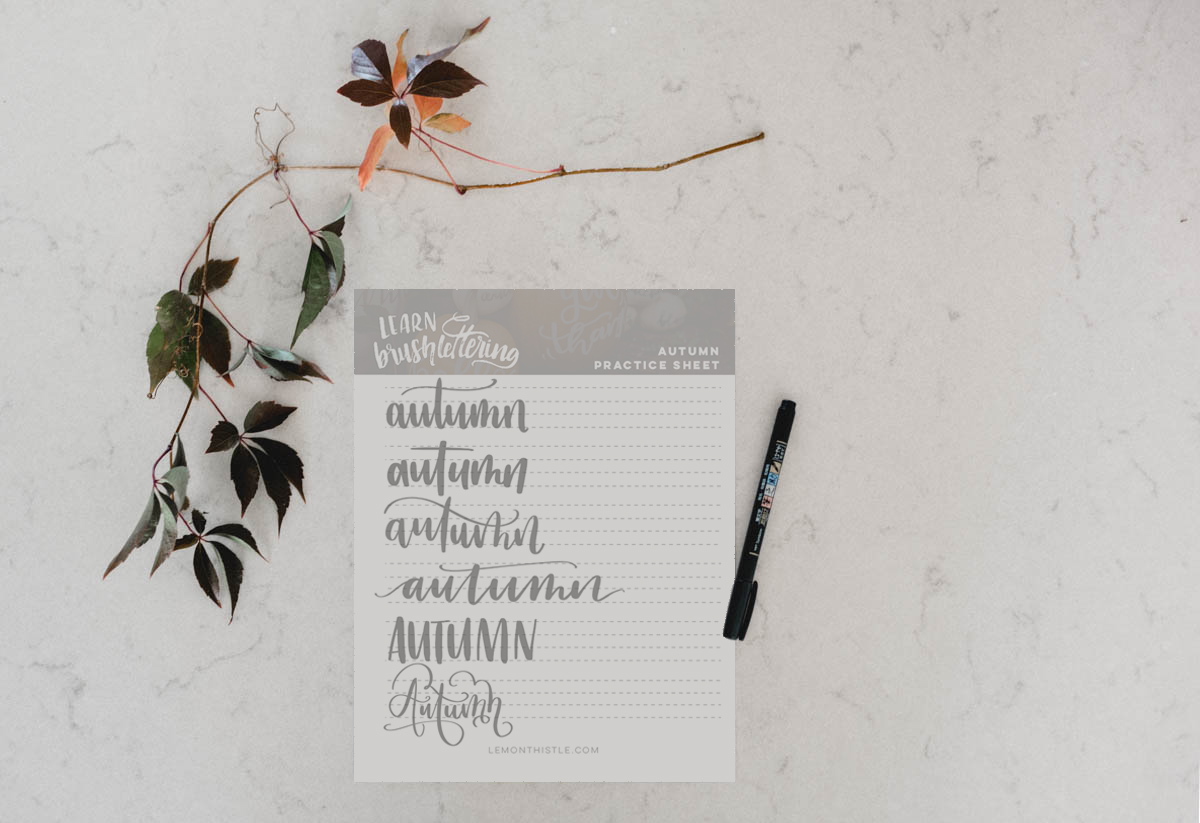 LEARN
brushlettering
AUTUMN
PRACTICE SHEET
autumn
autumn
autumn
autumn
AUTUMN
Autumn
LEMONTHISTLE.COM